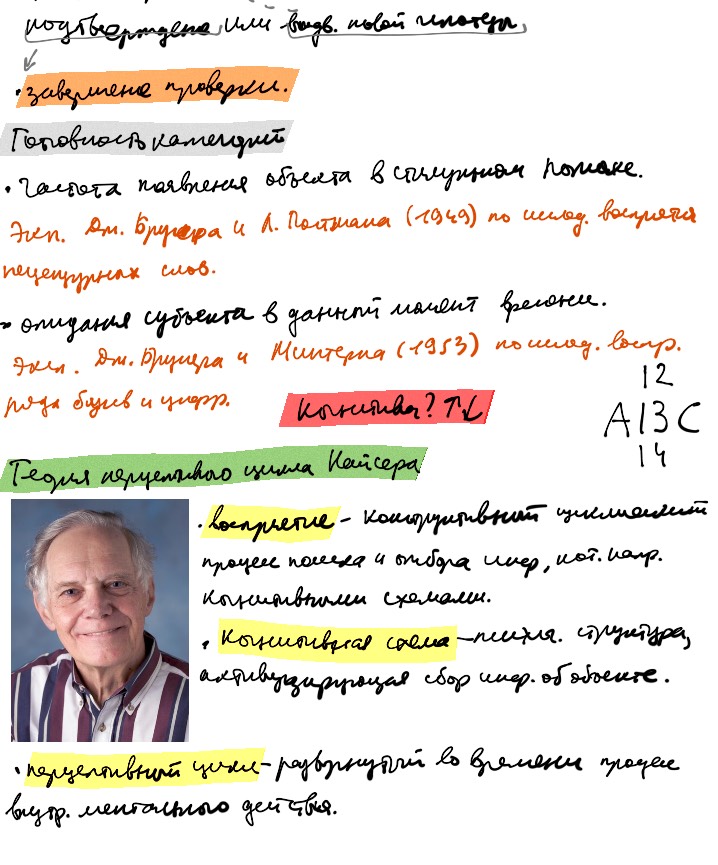 подтверждена, или выдв. новой гипотезы,
• завершение проверки.
Готовность категорий
• Частота появления объекта в стимульном потоке.
Эксп. Дж. Брунера и Л. Постмана (1949) по исслед. восприятия
нецензурных слов.
• ожидания субъекта в данный момент времени.
Эксп. Дж. Брунера и Минтерна (1953) по исслед. воспр.
ряда букв и цифр.
12
A 13 C
14
Теория перцептивного цикла Найсера
• восприятие – конструктивный циклический
процесс поиска и отбора инф, кот. напр.
когнитивными схемами.
• Когнитивная схема – психол. структура,
активизирующая сбор инф. об объекте.
• перцептивный цикл – развёрнутый во времени процесс
внутр. ментального действия.